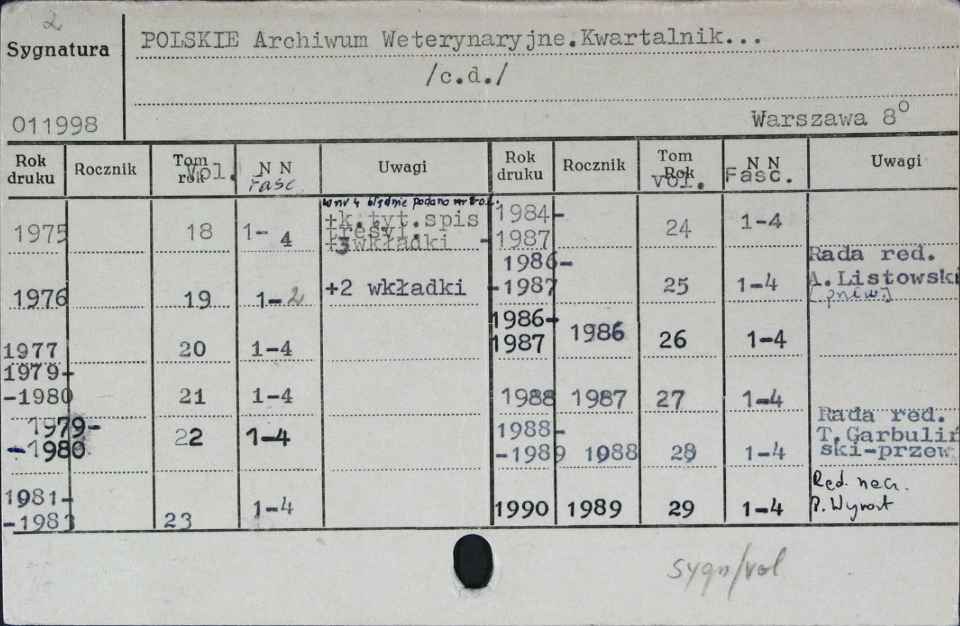 2
Sygnatura
POLSKIE Archiwum Weterynaryjne.Kwartalnik...
/c.d./
011998
Warszawa 8°
Rok druku Rocznik Tom rok Vol. N N Fasc. Uwagi Rok druku Rocznik Tom Rok Vol. N N Fasc. Uwagi
w nr 4 błędnie podano nr
1975 18 1-4 +k.tyt.spis
treści.
+3wkładki
1976 19 1-2 +2 wkładki
1977 20 1-4
1979-
-1980 21 1-4
1979-
-1980 22 1-4
1981-
-1983 23 1-4
1984-
-1987 24 1-4
1986-
-1987 25 1-4 Rada red.
A.Listowski
1986-
1987 1986 26 1-4
1988 1987 27 1-4
1988-
-1989 1988 28 1-4 Rada red.
T.Garbuliń
ski-przew.
1990 1989 29 1-4 Red. nacz.
P. Wyrost
sygn/vol